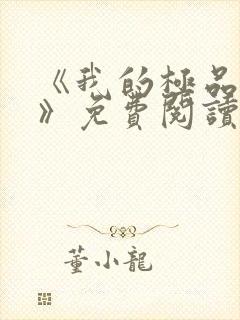 《我的極品
》免費閱讀
董小龍